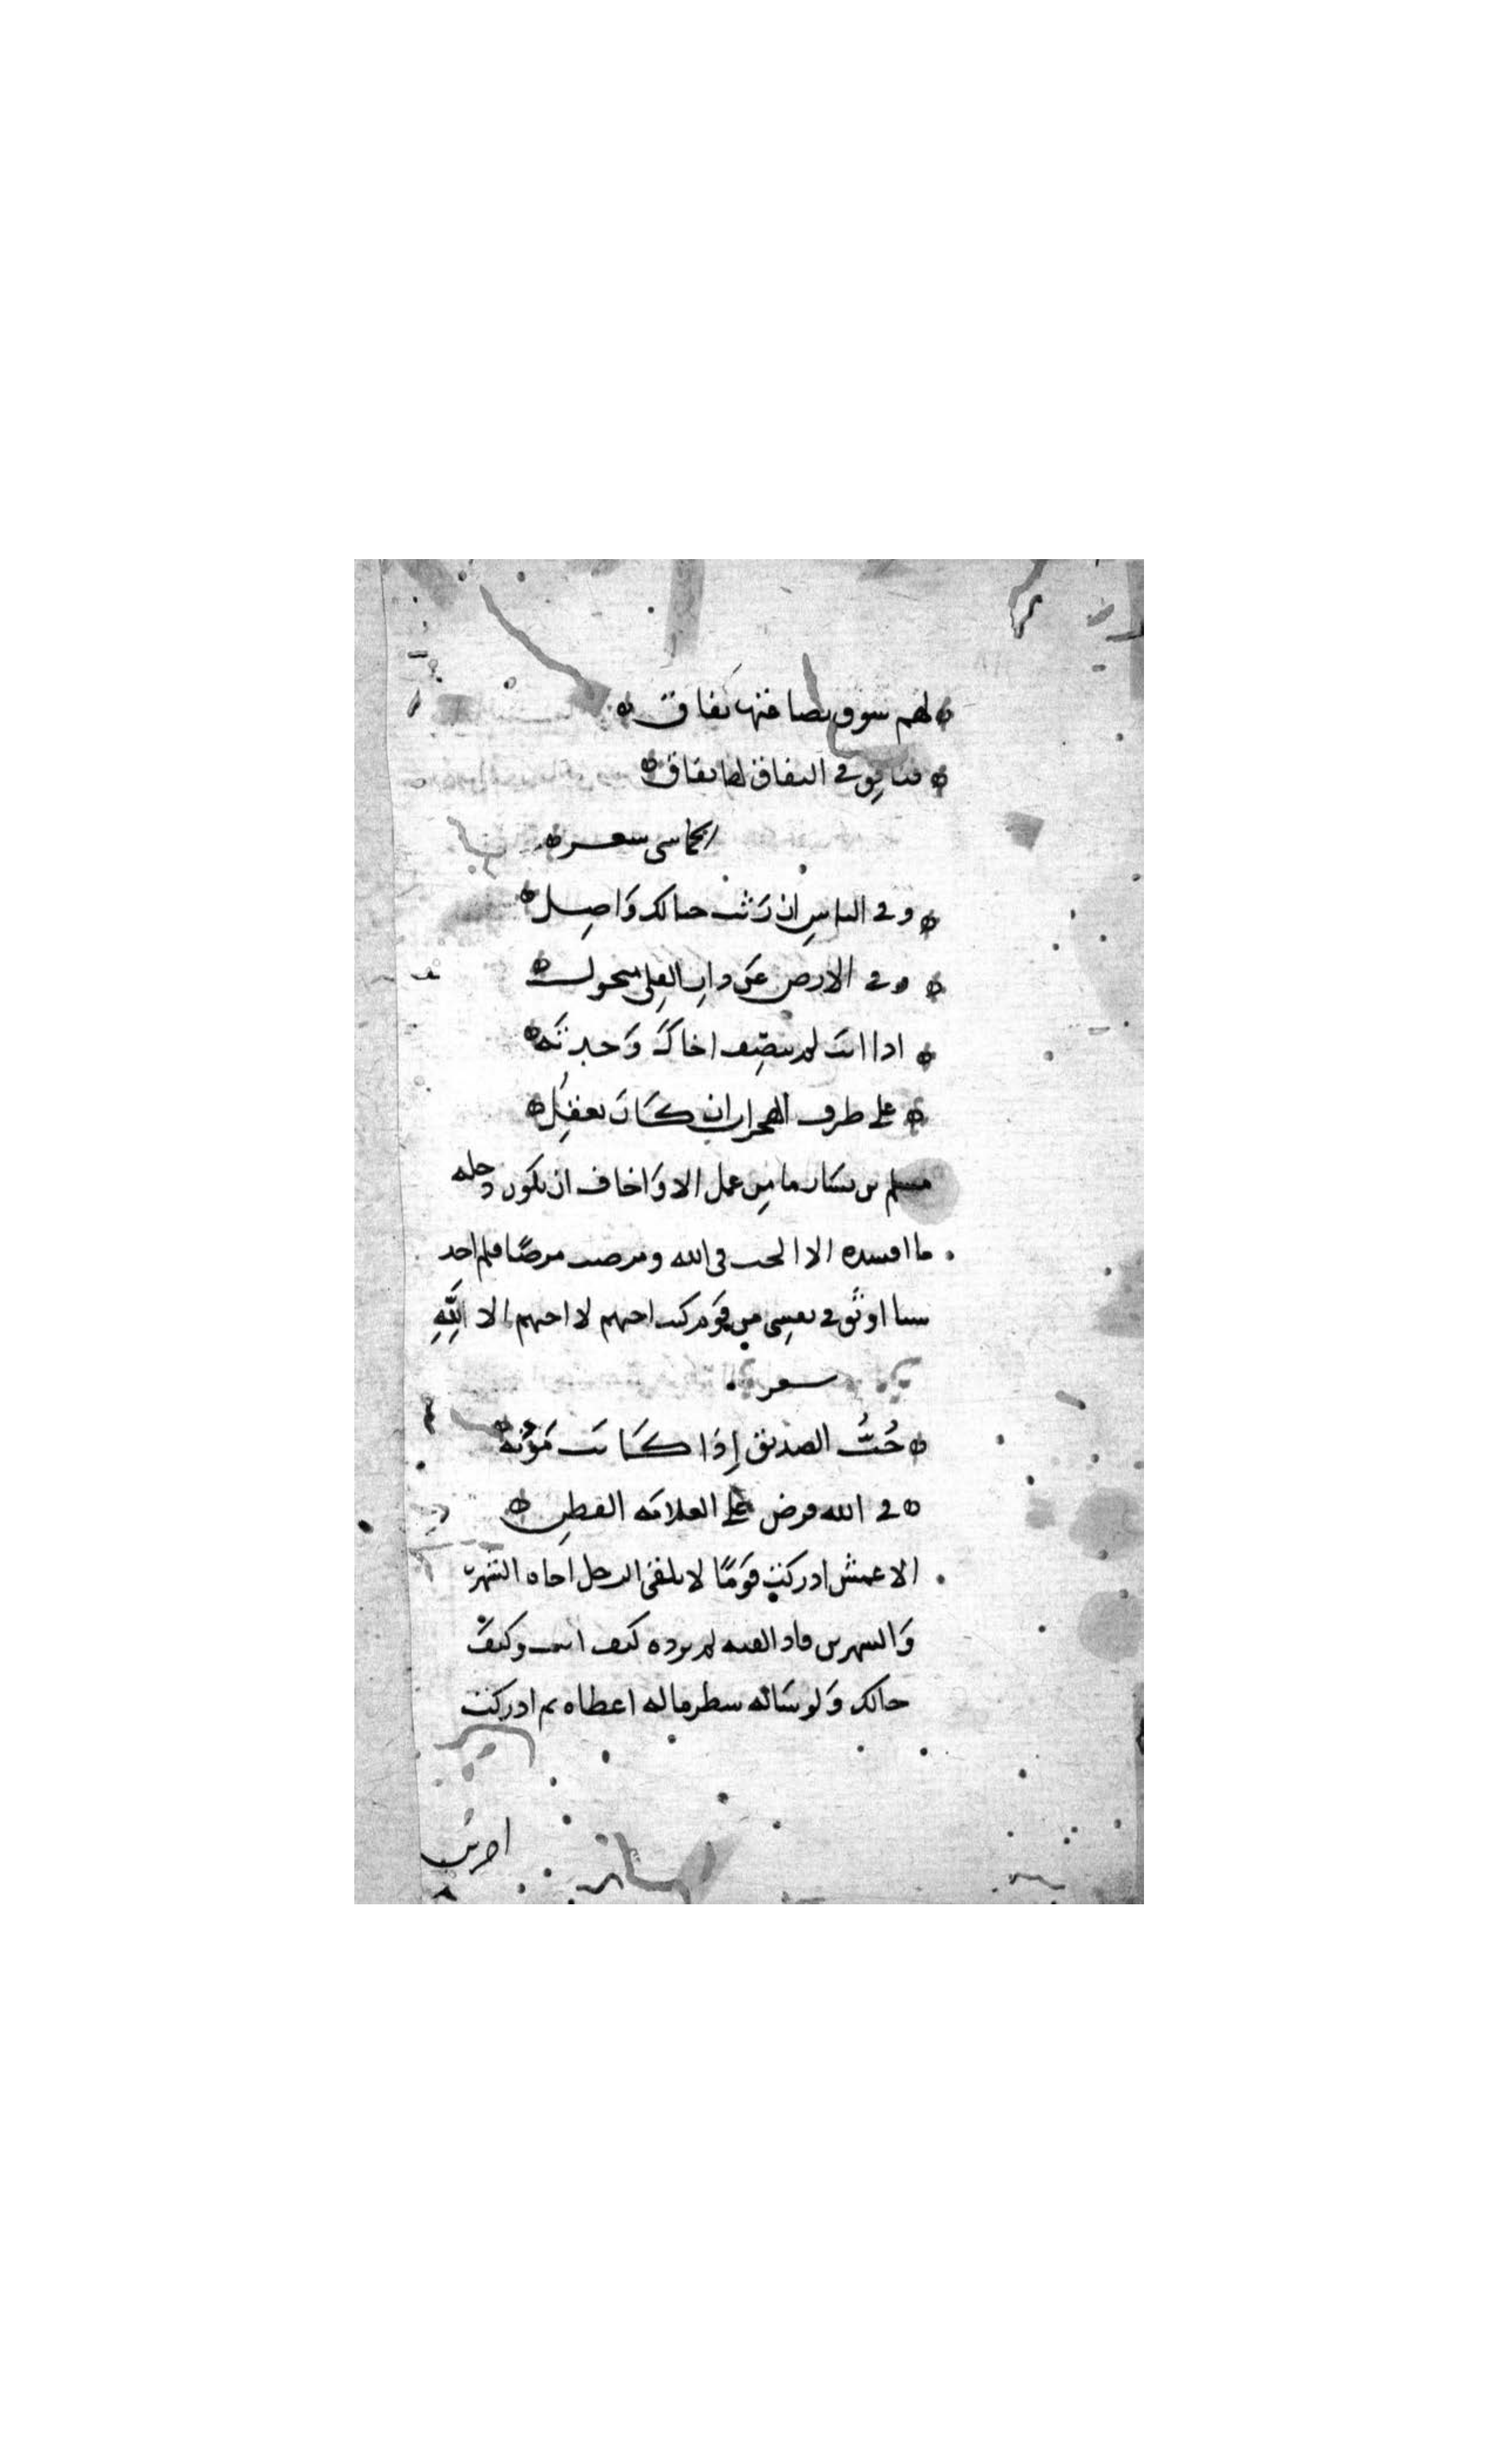 لهم سوق بضاعتها نفاق
فنافق في النفاق لها نفاق
الحماسي شعر
وفي الناس ان رثت حبالك واصل
وفي الارض عن دار القلى متحول
اذا انت لم تنصف اخاك وجدته
على طرف الهجران ان كان يعقل
مسلم بن يسار ما من عمل الا واخاف ان يكون دخله
ما افسده الا الحب في الله ومرضت مرضًا فلم اجد
شيا اوثق في نفسي من قوم كنت احبهم لا احبهم الا لله
شعر
حُبُّ الصديق إذا كانت مَوُنته
في الله فرض على العلامة الفطن
الاعمش ادركت قومًا لا يلقى الرجل اخاه الشهر
والشهرين فاذا لقيه لم يزده كيف انت وكيف
حالك ولو ساله شطر ماله اعطاه ثم ادركت
اخرين